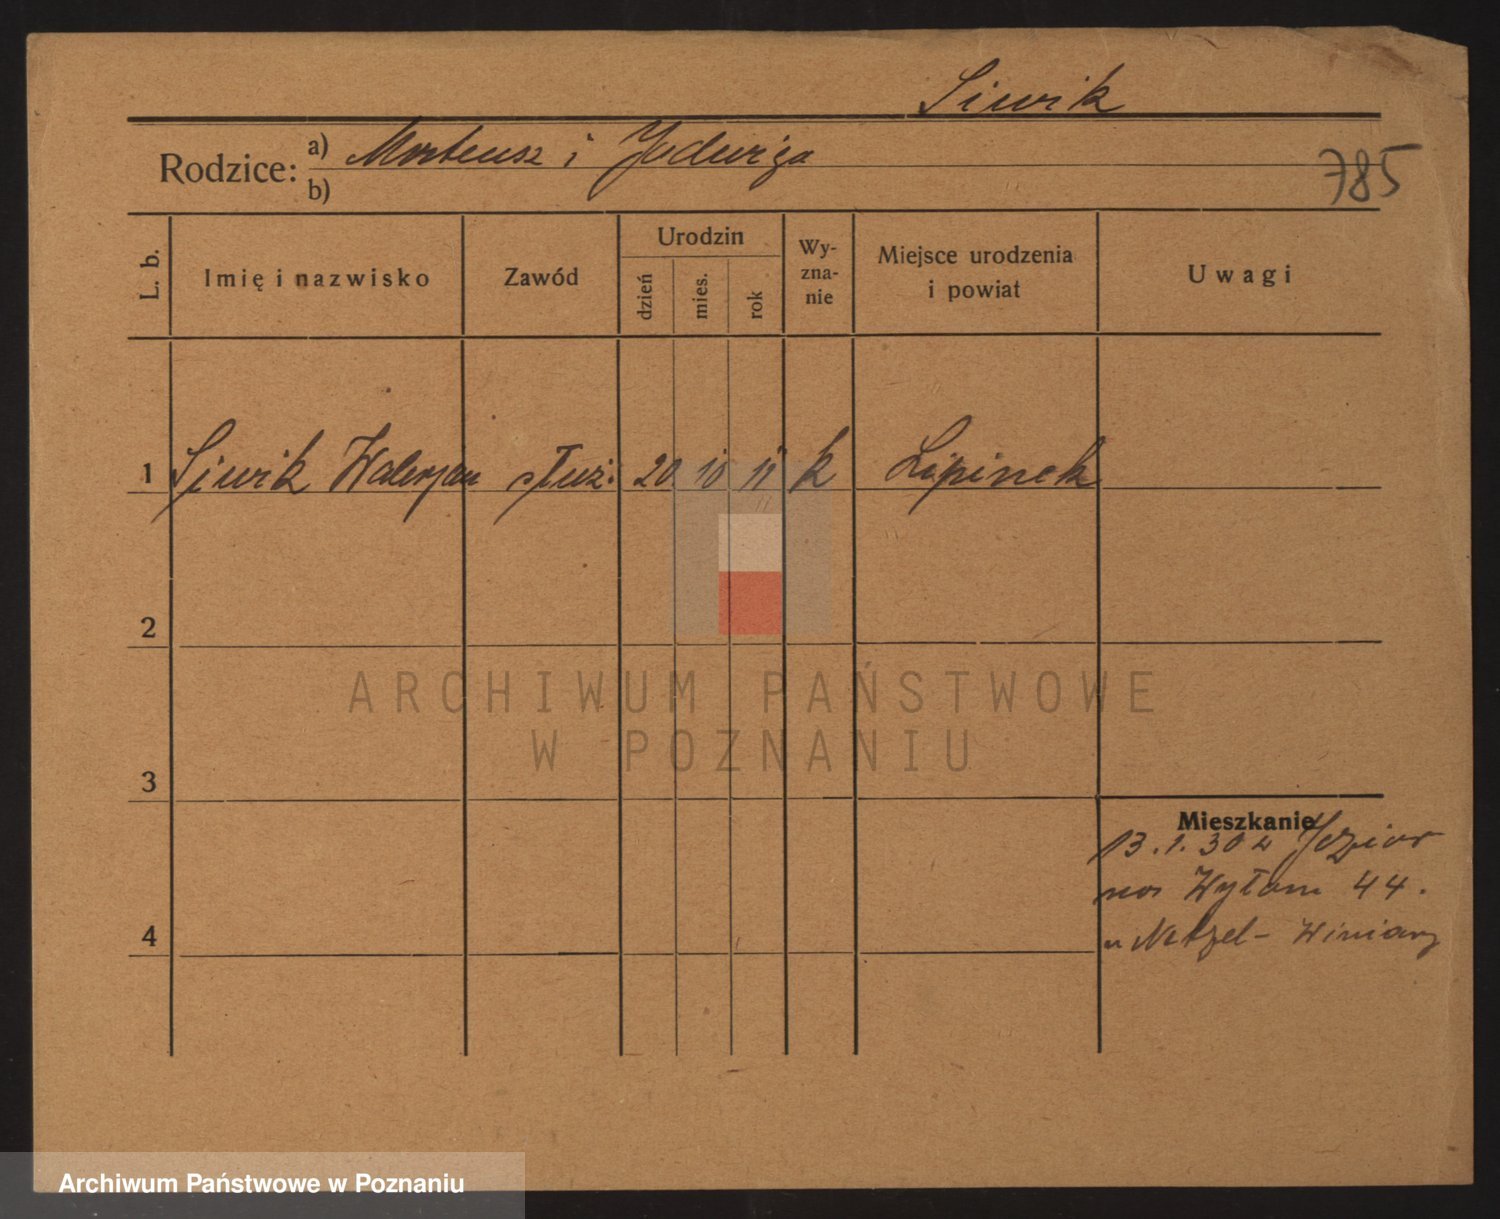 Siwik
Rodzice: a) Mateusz i Jadwiga
b)
785
L. b.
Imię i nazwisko
Zawód
Urodzin
dzień
mies.
rok
Wy-
zna-
nie
Miejsce urodzenia
i powiat
Uwagi
1 Siwik Walerjan służ. 20 10 11 k Lipinek
2
3
4
Mieszkanie
13.1.30 z Jezior
Wyłom 44.
u Netzel - Winiary
ARCHIWUM PAŃSTWOWE
W POZNANIU
Archiwum Państwowe w Poznaniu